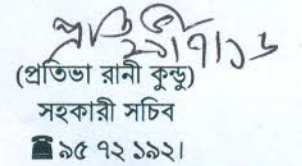 (প্রতিভা রানী কুন্ডু)
সহকারী সচিব
☎ ৯৫ ৭২ ১৯২।